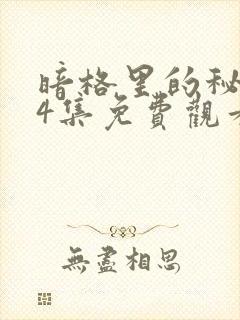 暗格里的秘
4集免費觀
無盡相思